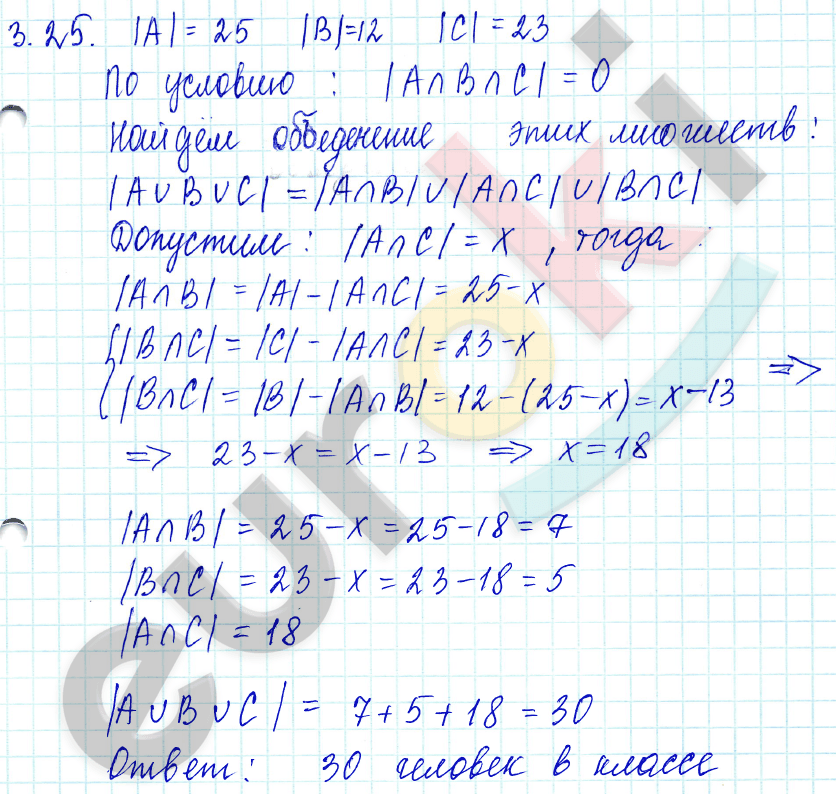 3.25. |A| = 25 |B|=12 |C| = 23
По условию : |A∩B∩C| = 0
Найдём объеденение этих множеств:
|A∪B∪C| = |A∩B|∪|A∩C|∪|B∩C|
Допустим: |A∩C| = x , тогда :
|A∩B| = |A| - |A∩C| = 25-x
{|B∩C| = |C| - |A∩C| = 23-x
{|B∩C| = |B| - |A∩B| = 12-(25-x) = x-13 =>
=> 23-x = x-13 => x=18
|A∩B| = 25-x = 25-18 = 7
|B∩C| = 23-x = 23-18 = 5
|A∩C| = 18
|A∪B∪C| = 7+5+18 = 30
Ответ: 30 человек в классе
euroki